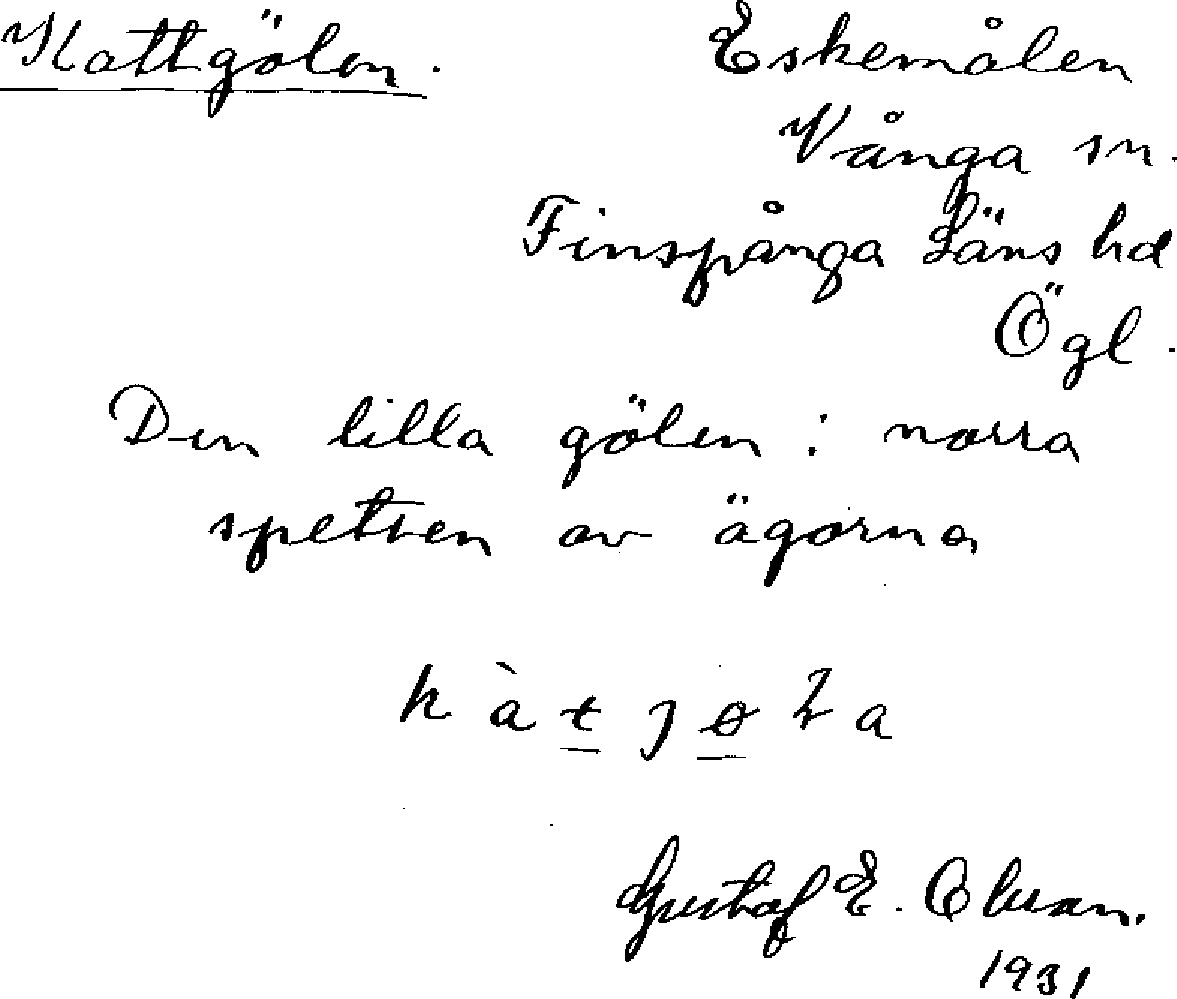 Kattgölen.
Eskemålen
Vånga sn.
Finspånga Läns hd
Ögl.
Den lilla gölen i norra
spetsen av ägorna
kàtjøla
Gustaf E. Olsson.
1931